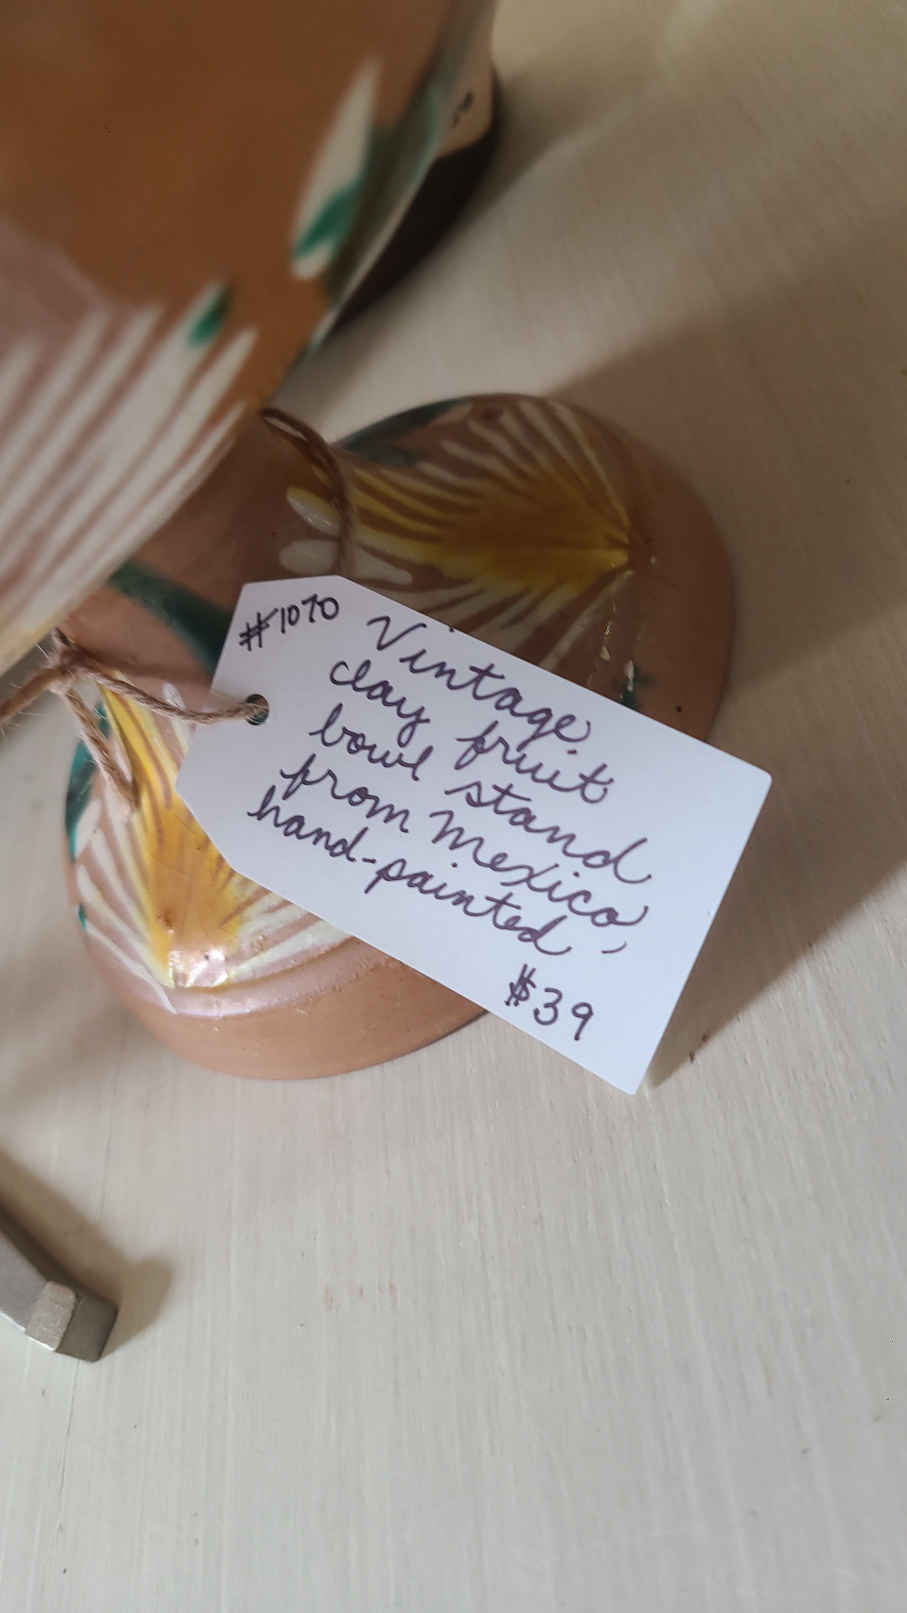 #1070
Vintage
clay fruit
bowl stand
from Mexico,
hand-painted
$39